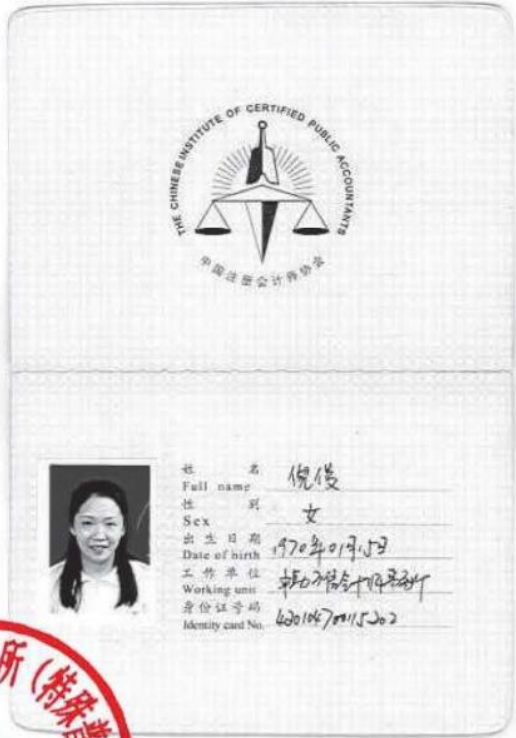 THE CHINESE INSTITUTE OF CERTIFIED PUBLIC ACCOUNTANTS
中国注册会计师协会
姓 名
Full name
倪俊
性 别
Sex
女
出生日期
Date of birth
1970年01月15日
工作单位
Working unit
身份证号码
Identity card No.
所（特殊普